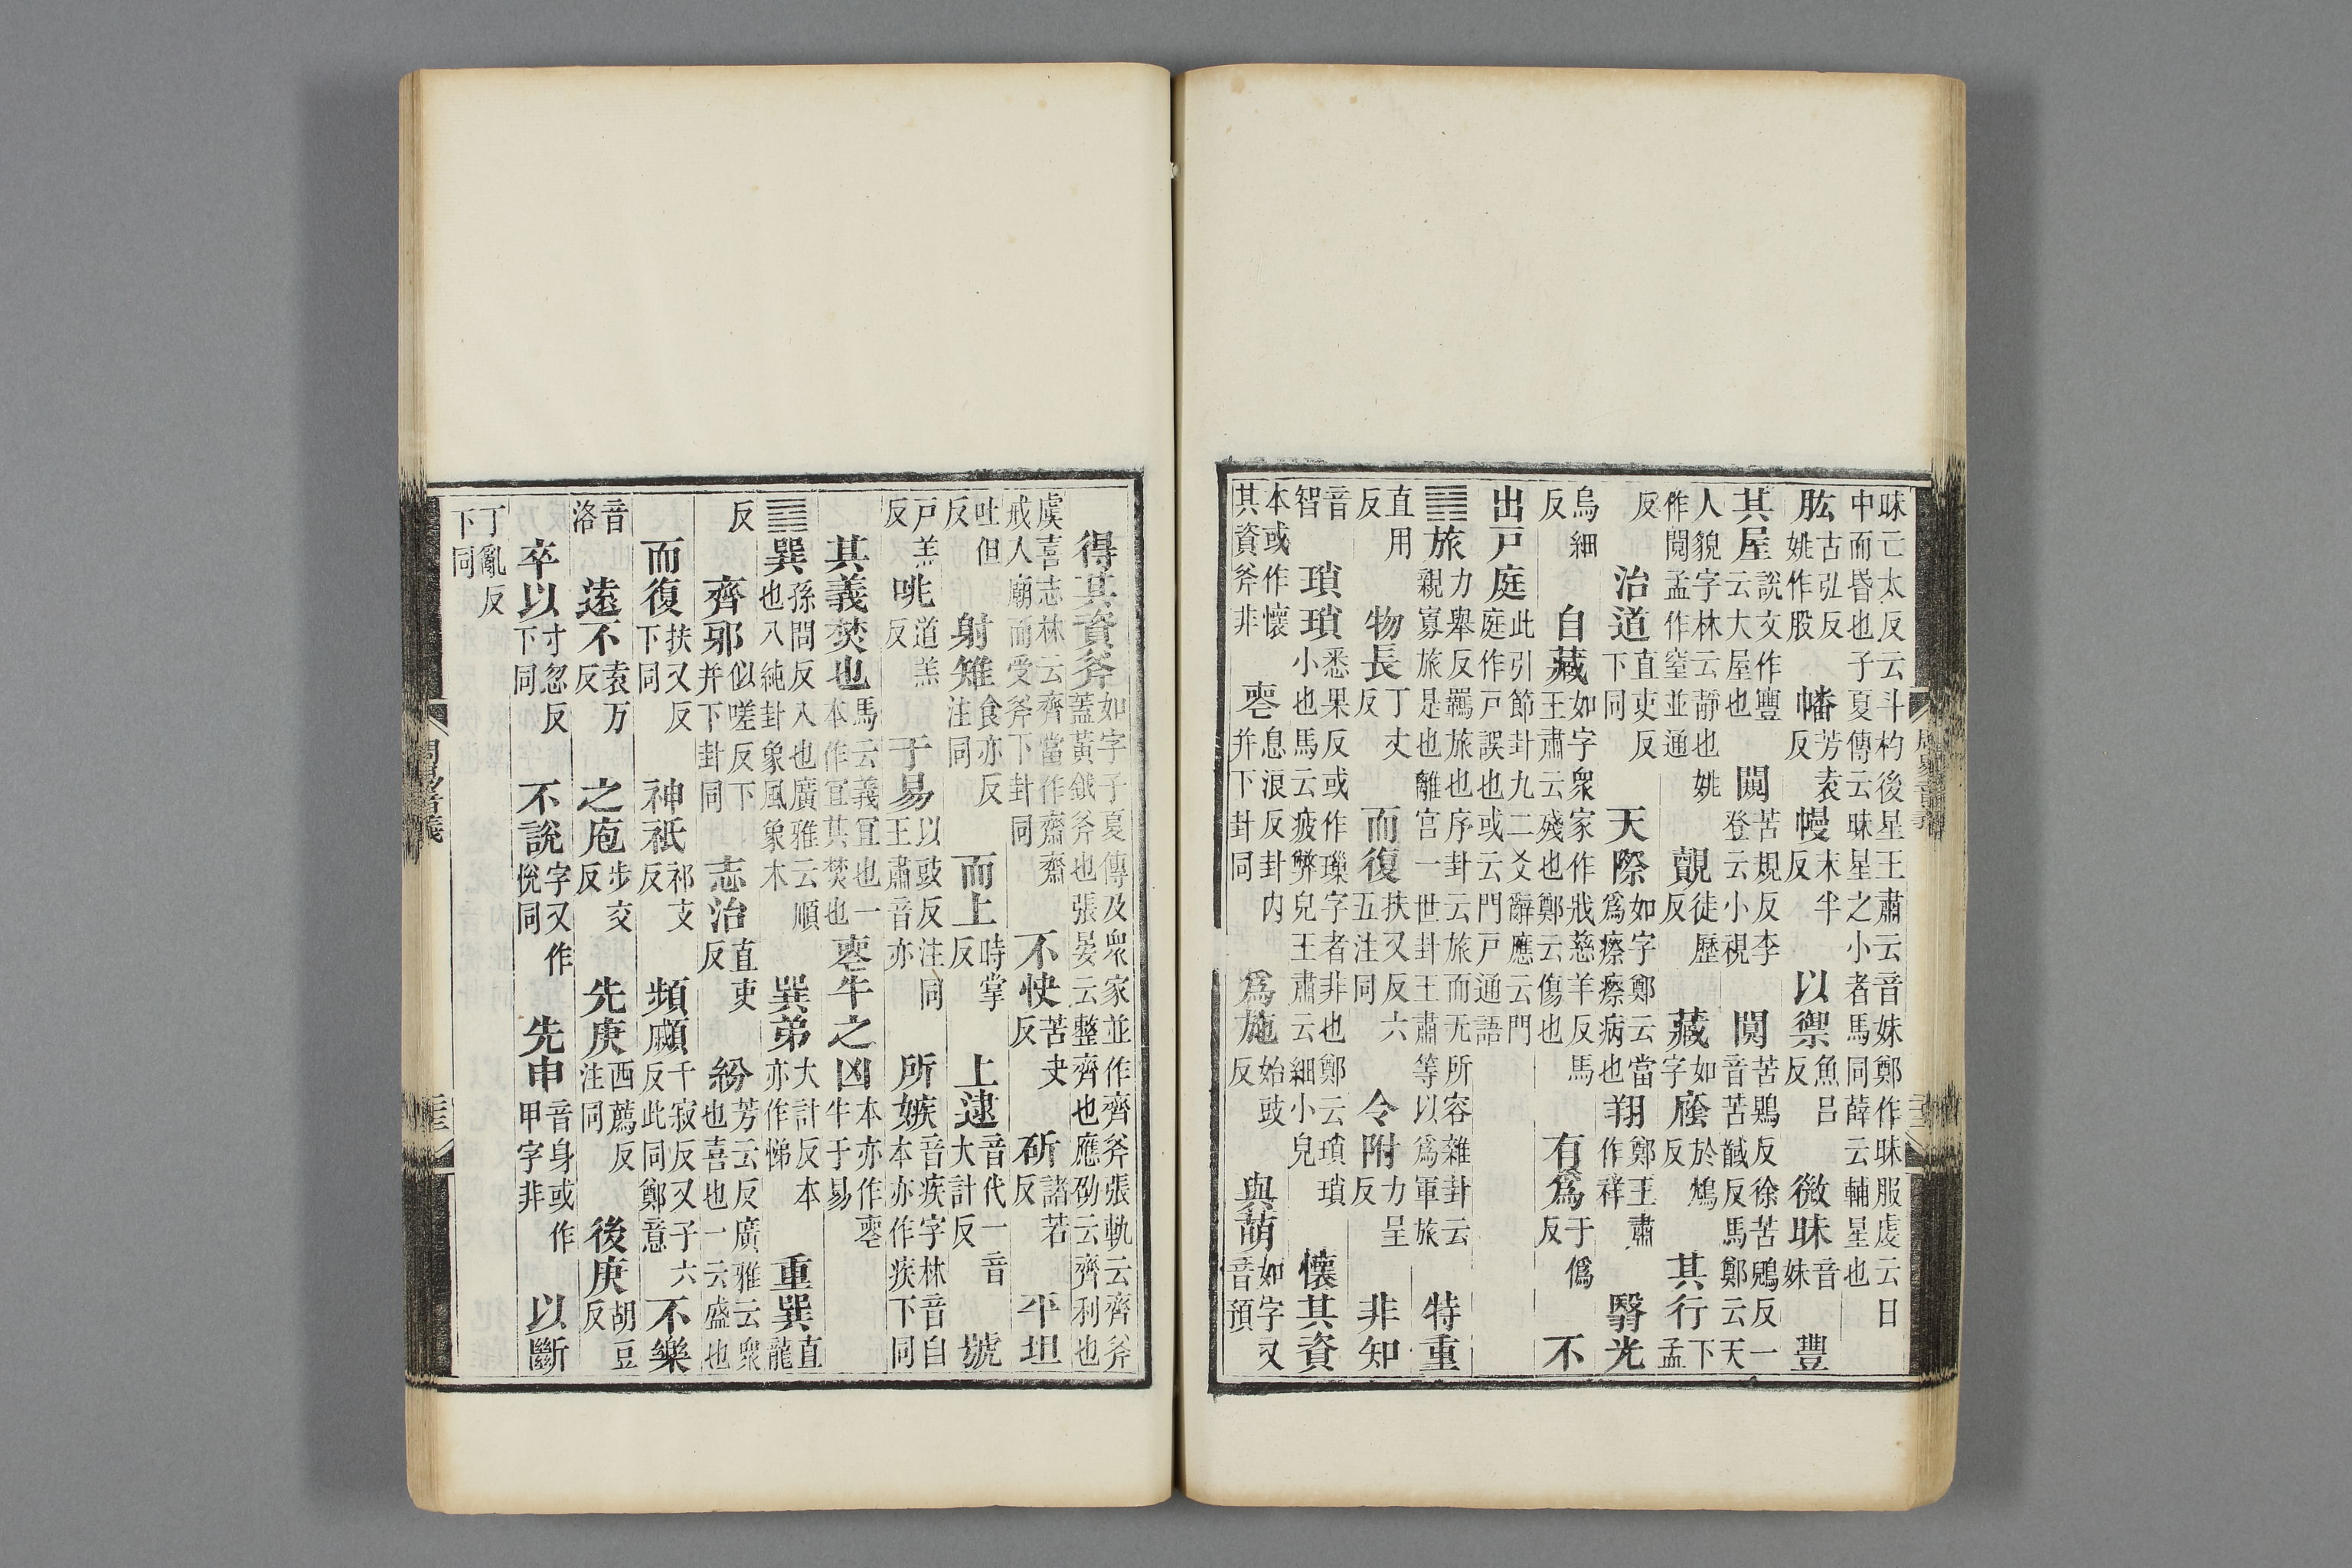 昧亡太反云斗杓後星王肅云音妹鄭作昧服虔云日中而昏也子夏傳云昧星之小者馬同薛云輔星也
肱古弘反姚作股 幡芳袁反 幔末半反 以禦魚呂反 微昧音妹 豐
其屋說文作豐云大屋也 闚苦規反李登云小視 闃苦鶪反徐苦鵙反一音苦馘反馬鄭云天
人貌字林云靜也姚作閱孟作窒並通 覿徒歷反 藏如字 廕於鴆反 其行下孟
反 治道直吏反下同 天際如字鄭云當爲瘵瘵病也 翔鄭王肅作祥 翳光
烏細反 自藏如字衆家作戕慈羊反馬王肅云殘也鄭云傷也 有爲于僞反 不
出戸庭此引節卦九二爻辭應云門庭作戸誤也或云門戸通語
䷷旅力舉反羈旅也序卦云旅而无所容雜卦云親寡旅是也離宮一世卦王肅等以爲軍旅 特重
直用反 物長丁丈反 而復扶又反六五注同 令附力呈反 非知
音智 瑣瑣悉果反或作璅字者非也鄭云瑣瑣小也馬云疲弊皃王肅云細小皃 懷其資
本或作懷其資斧非 䘮息浪反卦内并下卦同 爲施始豉反 與萌如字又音預
周易音義
得其資斧如字子夏傳及衆家並作齊斧張軌云齊斧蓋黃鉞斧也張晏云整齊也應劭云齊利也
虞喜志林云齊當作齋齋戒入廟而受斧下卦同 不快苦夬反 斫諸若反 平坦
吐但反 射雉食亦反注同 而上時掌反 上逮音代一音大計反 號
戸羔反 咷道羔反 于易以豉反注同王肅音亦 所嫉音疾字林音自本亦作疾下同
其義焚也馬云義宜也一本作宜其焚也 䘮牛之凶本亦作䘮牛于易
䷸巽孫問反入也廣雅云順也八純卦象風象木 巽弟大計反本亦作悌 重巽直龍
反 齊邪似嗟反下并下卦同 志治直吏反 紛芳云反廣雅云衆也喜也一云盛也
而復扶又反下同 神祇祁支反 頻顣千寂反又子六反此同鄭意 不樂
音洛 遠不袁万反 之庖步交反 先庚西薦反注同 後庚胡豆反
卒以寸忽反下同 不說字又作悅同 先申音身或作甲字非 以斷
丁亂反下同
周易音義